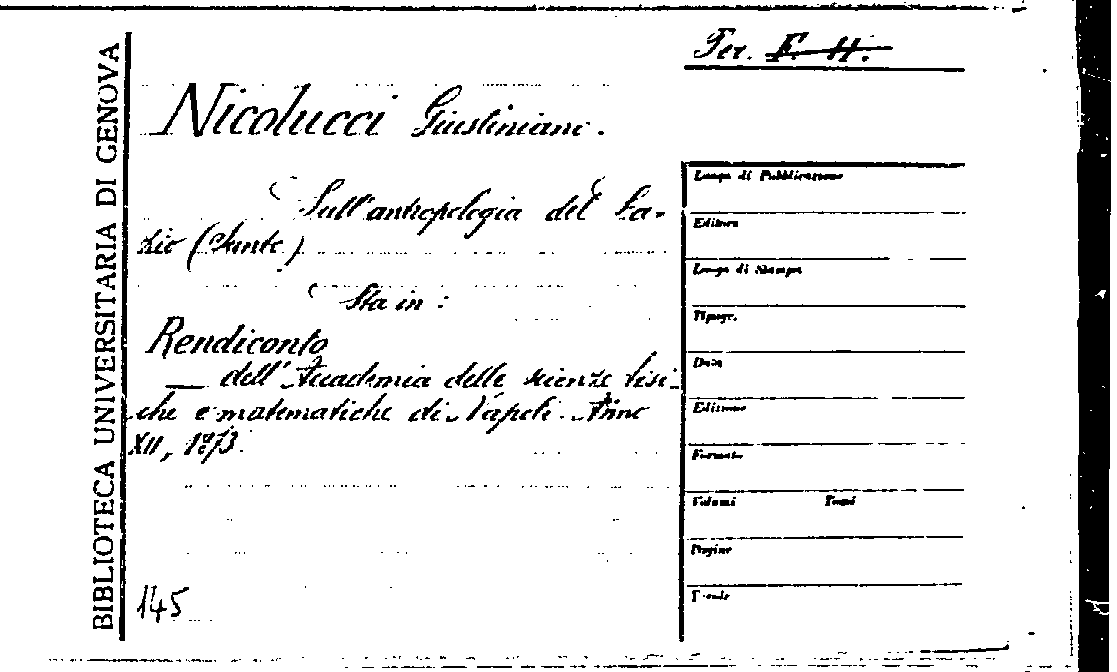 BIBLIOTECA UNIVERSITARIA DI GENOVA
Per. F. H.
Nicolucci Giustiniano.
Sull'antropologia del La-
zio (Sunto)
Sta in :
Rendiconto
— dell'Accademia delle scienze fisi-
che e matematiche di Napoli. Anno
XII, 1873.
145
Luogo di Pubblicazione
Editore
Luogo di Stampa
Tipogr.
Data
Edizione
Formato
Volumi Tomi
Pagine